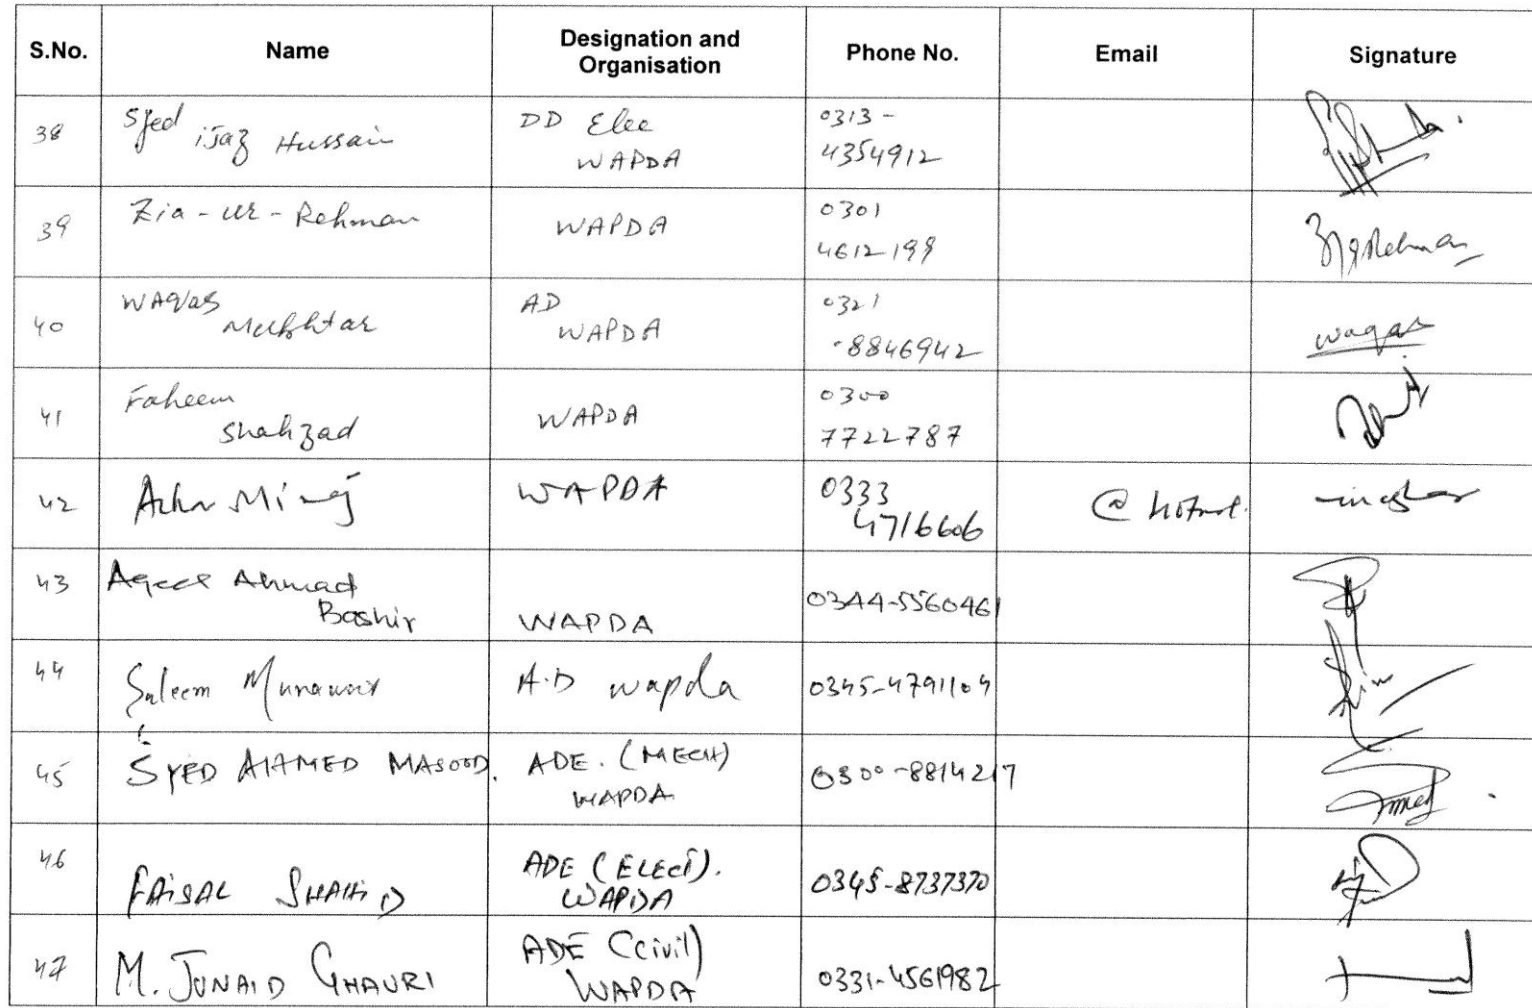 S.No. Name Designation and Organisation Phone No. Email Signature
38 Syed ijaz Hussain DD Elec WAPDA 0313- 4354912
39 Zia-ur-Rehman WAPDA 0301 4612199 Rehman
40 WAQas Mukhtar AD WAPDA 0321 -8846942 waqas
41 Faheem Shahzad WAPDA 0300 7722787
42 WAPDA 0333 4716606
43 Aqeel Ahmad Bashir WAPDA 0344-5560461
44 Saleem Munawar A.D wapda 0345-4791104
45 SYED AHAMED MASOOD. ADE. (MECH) WAPDA 0300-8814217
46 FAISAL SHAHID ADE (ELECT). WAPDA 0345-8737370
47 M. JUNAID GHAURI ADE (civil) WAPDA 0331-4561982